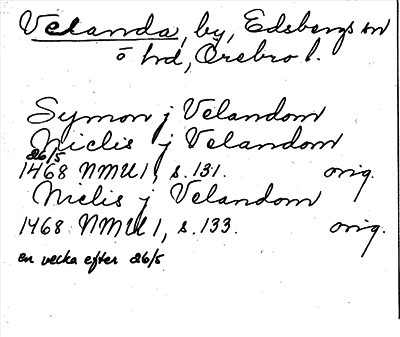 Velanda, by, Edsbergs sn
o hd, Örebro l.
Symon j Velandom
Niclis j Velandom
26/5
1468 NMU 1, s. 131. orig.
Niclis j Velandom
1468 NMU 1, s. 133. orig.
en vecka efter 26/5